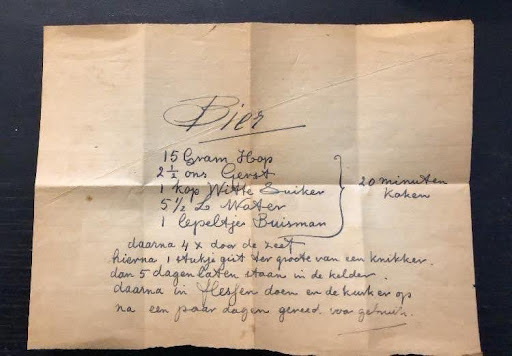 Bier
15 Gram Hop
2 1/2 ons Gerst
1 kop Witte Suiker
5 1/2 L Water
1 lepeltje Buisman
20 minuten
Koken
daarna 4 x door de zeef
hierna 1 stukje gist ter groote van een knikker.
dan 5 dagen laten staan in de kelder.
daarna in flessen doen en de kurk er op
na een paar dagen gereed voor gebruik.